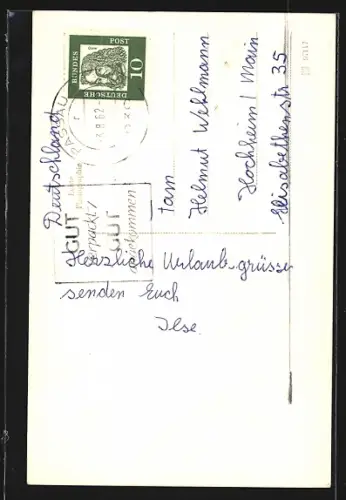 DEUTSCHE
BUNDES
POST
10
PASSAU
GUT
verpackt /
GUT
angekommen
Deutschland
Herzliche Urlaubsgrüsse
senden Euch
Ilse.
Fam
Helmut Wehlmann
Hochheim / Main
Elisabethenstr 35